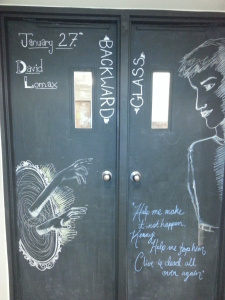 January 27th
David
Lomax
BACKWARD
GLASS
"Help me make
it not happen,
Kenny.
Help me stop him.
Clive is dead all
over again"